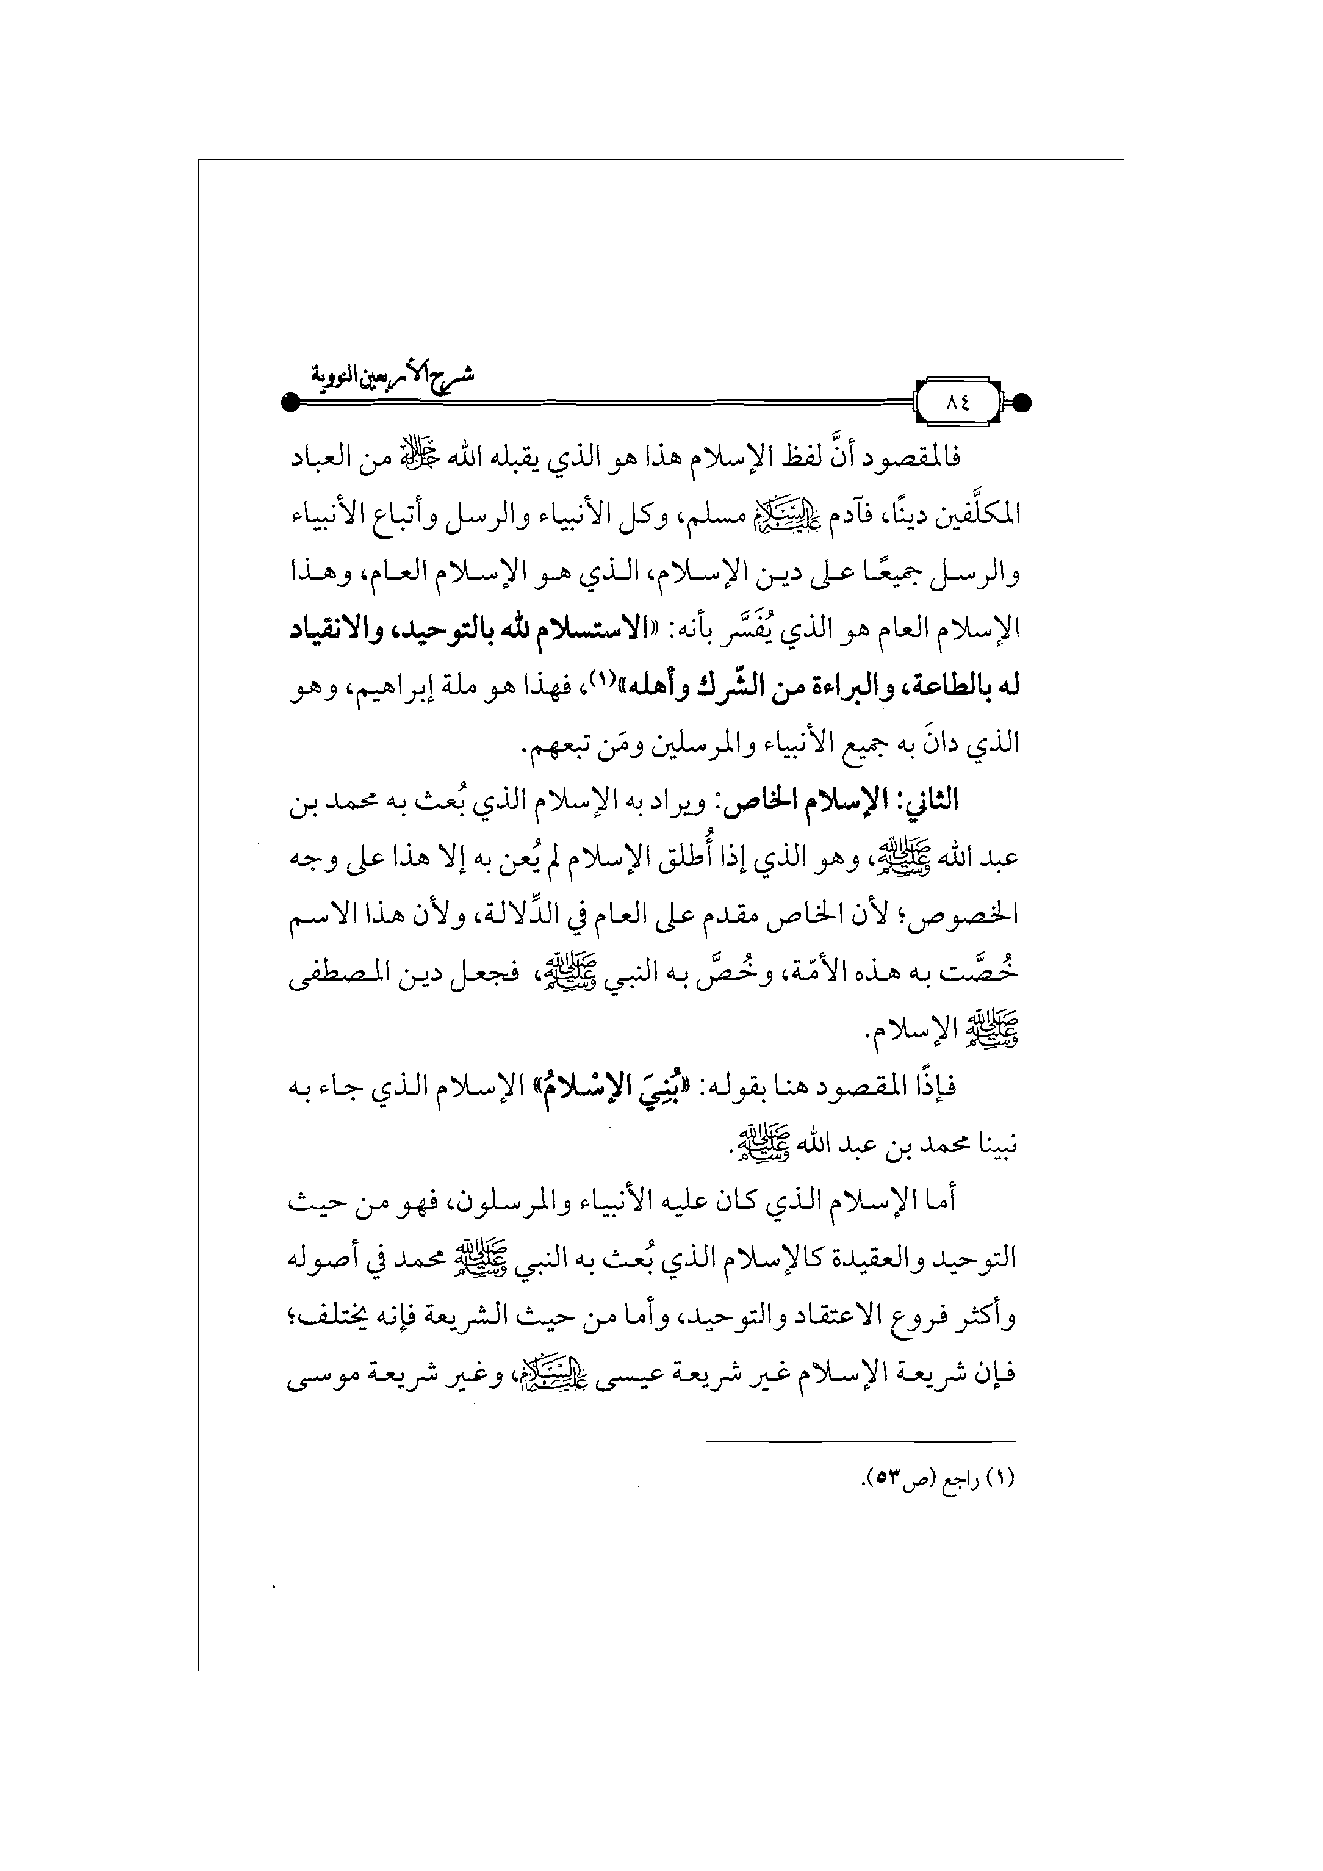 شرح الأربعين النووية
٨٤
فالمقصود أنَّ لفظ الإسلام هذا هو الذي يقبله الله ﷻ من العباد
المكلَّفين دينًا، فآدم عليه السلام مسلم، وكل الأنبياء والرسل وأتباع الأنبياء
والرسل جميعًا على دين الإسلام، الذي هو الإسلام العام، وهذا
الإسلام العام هو الذي يُفَسَّر بأنه: «الاستسلام لله بالتوحيد، والانقياد
له بالطاعة، والبراءة من الشّرك وأهله»(١)، فهذا هو ملة إبراهيم، وهو
الذي دانَ به جميع الأنبياء والمرسلين ومَن تبعهم.
الثاني: الإسلام الخاص: ويراد به الإسلام الذي بُعث به محمد بن
عبد الله ﷺ، وهو الذي إذا أُطلق الإسلام لم يُعن به إلا هذا على وجه
الخصوص؛ لأن الخاص مقدم على العام في الدِّلالة، ولأن هذا الاسم
خُصَّت به هذه الأمّة، وخُصَّ به النبي ﷺ، فجعل دين المصطفى
ﷺ الإسلام.
فإذًا المقصود هنا بقوله: «بُنِيَ الإسْلامُ» الإسلام الذي جاء به
نبينا محمد بن عبد الله ﷺ.
أما الإسلام الذي كان عليه الأنبياء والمرسلون، فهو من حيث
التوحيد والعقيدة كالإسلام الذي بُعث به النبي ﷺ محمد في أصوله
وأكثر فروع الاعتقاد والتوحيد، وأما من حيث الشريعة فإنه يختلف؛
فإن شريعة الإسلام غير شريعة عيسى عليه السلام، وغير شريعة موسى
(١) راجع (ص٥٣).